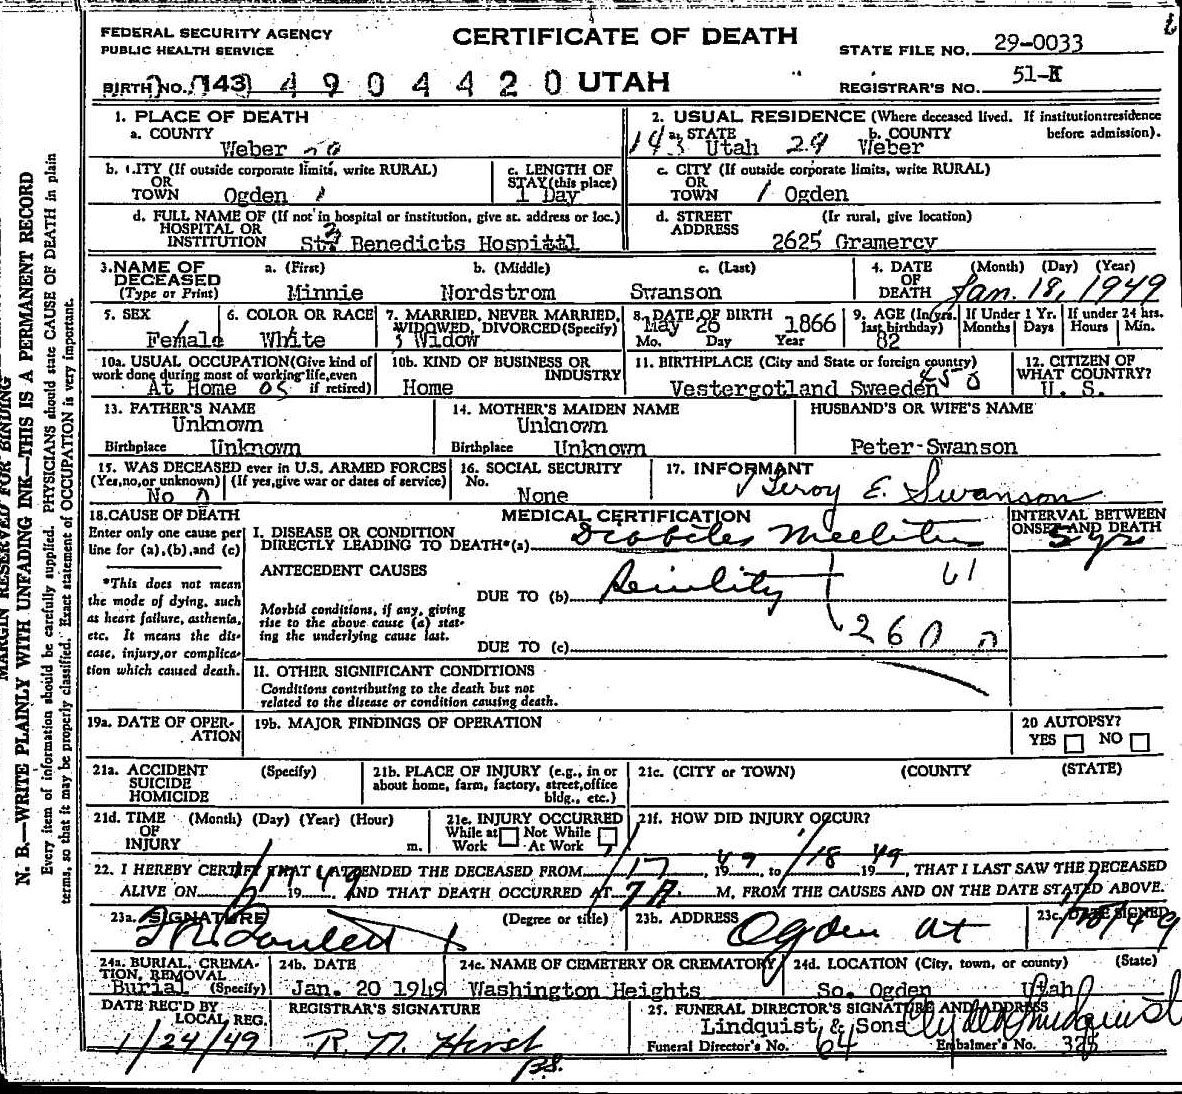 FEDERAL SECURITY AGENCY
PUBLIC HEALTH SERVICE
CERTIFICATE OF DEATH
STATE FILE NO. 29-0033
BIRTH NO. (143) 4 9 0 4 4 2 0 UTAH
REGISTRAR'S NO. 51-
1. PLACE OF DEATH
a. COUNTY
Weber
2. USUAL RESIDENCE (Where deceased lived. If institution:residence before admission).
143 a. STATE
Utah 29
b. COUNTY
Weber
b. CITY (If outside corporate limits, write RURAL)
OR
TOWN Ogden 1
c. LENGTH OF
STAY(this place)
1 Day
c. CITY (If outside corporate limits, write RURAL)
OR
TOWN 1 Ogden
d. FULL NAME OF (If not in hospital or institution, give st. address or loc.)
HOSPITAL OR
INSTITUTION St. Benedicts Hospittl
d. STREET (If rural, give location)
ADDRESS
2625 Gramercy
3. NAME OF
DECEASED
(Type or Print)
a. (First)
Minnie
b. (Middle)
Nordstrom
c. (Last)
Swanson
4. DATE
OF
DEATH
(Month) (Day) (Year)
Jan. 18, 1949
5. SEX
Female
6. COLOR OR RACE
White
7. MARRIED, NEVER MARRIED,
WIDOWED, DIVORCED(Specify)
3 Widow
8. DATE OF BIRTH
May 26 1866
Mo. Day Year
9. AGE (In yrs.
last birthday)
82
If Under 1 Yr.
Months Days
If under 24 hrs.
Hours Min.
10a. USUAL OCCUPATION(Give kind of
work done during most of working life,even
At Home 05 if retired)
10b. KIND OF BUSINESS OR
INDUSTRY
Home
11. BIRTHPLACE (City and State or foreign country)
Vestergotland Sweeden
12. CITIZEN OF
WHAT COUNTRY?
U. S.
13. FATHER'S NAME
Unknown
Birthplace Unknown
14. MOTHER'S MAIDEN NAME
Unknown
Birthplace Unknown
HUSBAND'S OR WIFE'S NAME
Peter-Swanson
15. WAS DECEASED ever in U.S. ARMED FORCES
(Yes,no,or unknown) (If yes,give war or dates of service)
No
16. SOCIAL SECURITY
No.
None
17. INFORMANT
Leroy E. Swanson
18.CAUSE OF DEATH
Enter only one cause per
line for (a),(b),and (c)
*This does not mean
the mode of dying, such
as heart failure, asthenia,
etc. It means the dis-
ease, injury,or complica-
tion which caused death.
MEDICAL CERTIFICATION
I. DISEASE OR CONDITION
DIRECTLY LEADING TO DEATH*(a) Diabetes Mellitus
INTERVAL BETWEEN
ONSET AND DEATH
5 yrs
ANTECEDENT CAUSES
61
DUE TO (b) Senility
Morbid conditions, if any, giving
rise to the above cause (a) stat-
ing the underlying cause last.
260
DUE TO (c)
II. OTHER SIGNIFICANT CONDITIONS
Conditions contributing to the death but not
related to the disease or condition causing death.
19a. DATE OF OPER-
ATION
19b. MAJOR FINDINGS OF OPERATION
20 AUTOPSY?
YES NO
21a. ACCIDENT (Specify)
SUICIDE
HOMICIDE
21b. PLACE OF INJURY (e.g., in or
about home, farm, factory, street,office
bldg., etc.)
21c. (CITY or TOWN) (COUNTY (STATE)
21d. TIME (Month) (Day) (Year) (Hour)
OF
INJURY m.
21e. INJURY OCCURRED
While at Not While
Work At Work
21f. HOW DID INJURY OCCUR?
22. I HEREBY CERTIFY THAT I ATTENDED THE DECEASED FROM 1/17, 1949 to 1/18 1949, THAT I LAST SAW THE DECEASED
ALIVE ON 1/17 1949 AND THAT DEATH OCCURRED AT 7A M, FROM THE CAUSES AND ON THE DATE STATED ABOVE.
23a. SIGNATURE (Degree or title)
23b. ADDRESS
Ogden Ut
23c. DATE SIGNED
1/18/49
24a. BURIAL, CREMA-
TION, REMOVAL
Burial (Specify)
24b. DATE
Jan. 20 1949
24c. NAME OF CEMETERY OR CREMATORY
Washington Heights
24d. LOCATION (City, town, or county) (State)
So. Ogden Utah
DATE REC'D BY
LOCAL REG.
1/24/49
REGISTRAR'S SIGNATURE
R. N. Hirst
25. FUNERAL DIRECTOR'S SIGNATURE AND ADDRESS
Lindquist & Sons
Funeral Director's No. 64 Embalmer's No. 328
MARGIN RESERVED FOR BINDING
N. B.—WRITE PLAINLY WITH UNFADING INK—THIS IS A PERMANENT RECORD
Every item of information should be carefully supplied. PHYSICIANS should state CAUSE OF DEATH in plain
terms, so that it may be properly classified. Exact statement of OCCUPATION is very important.